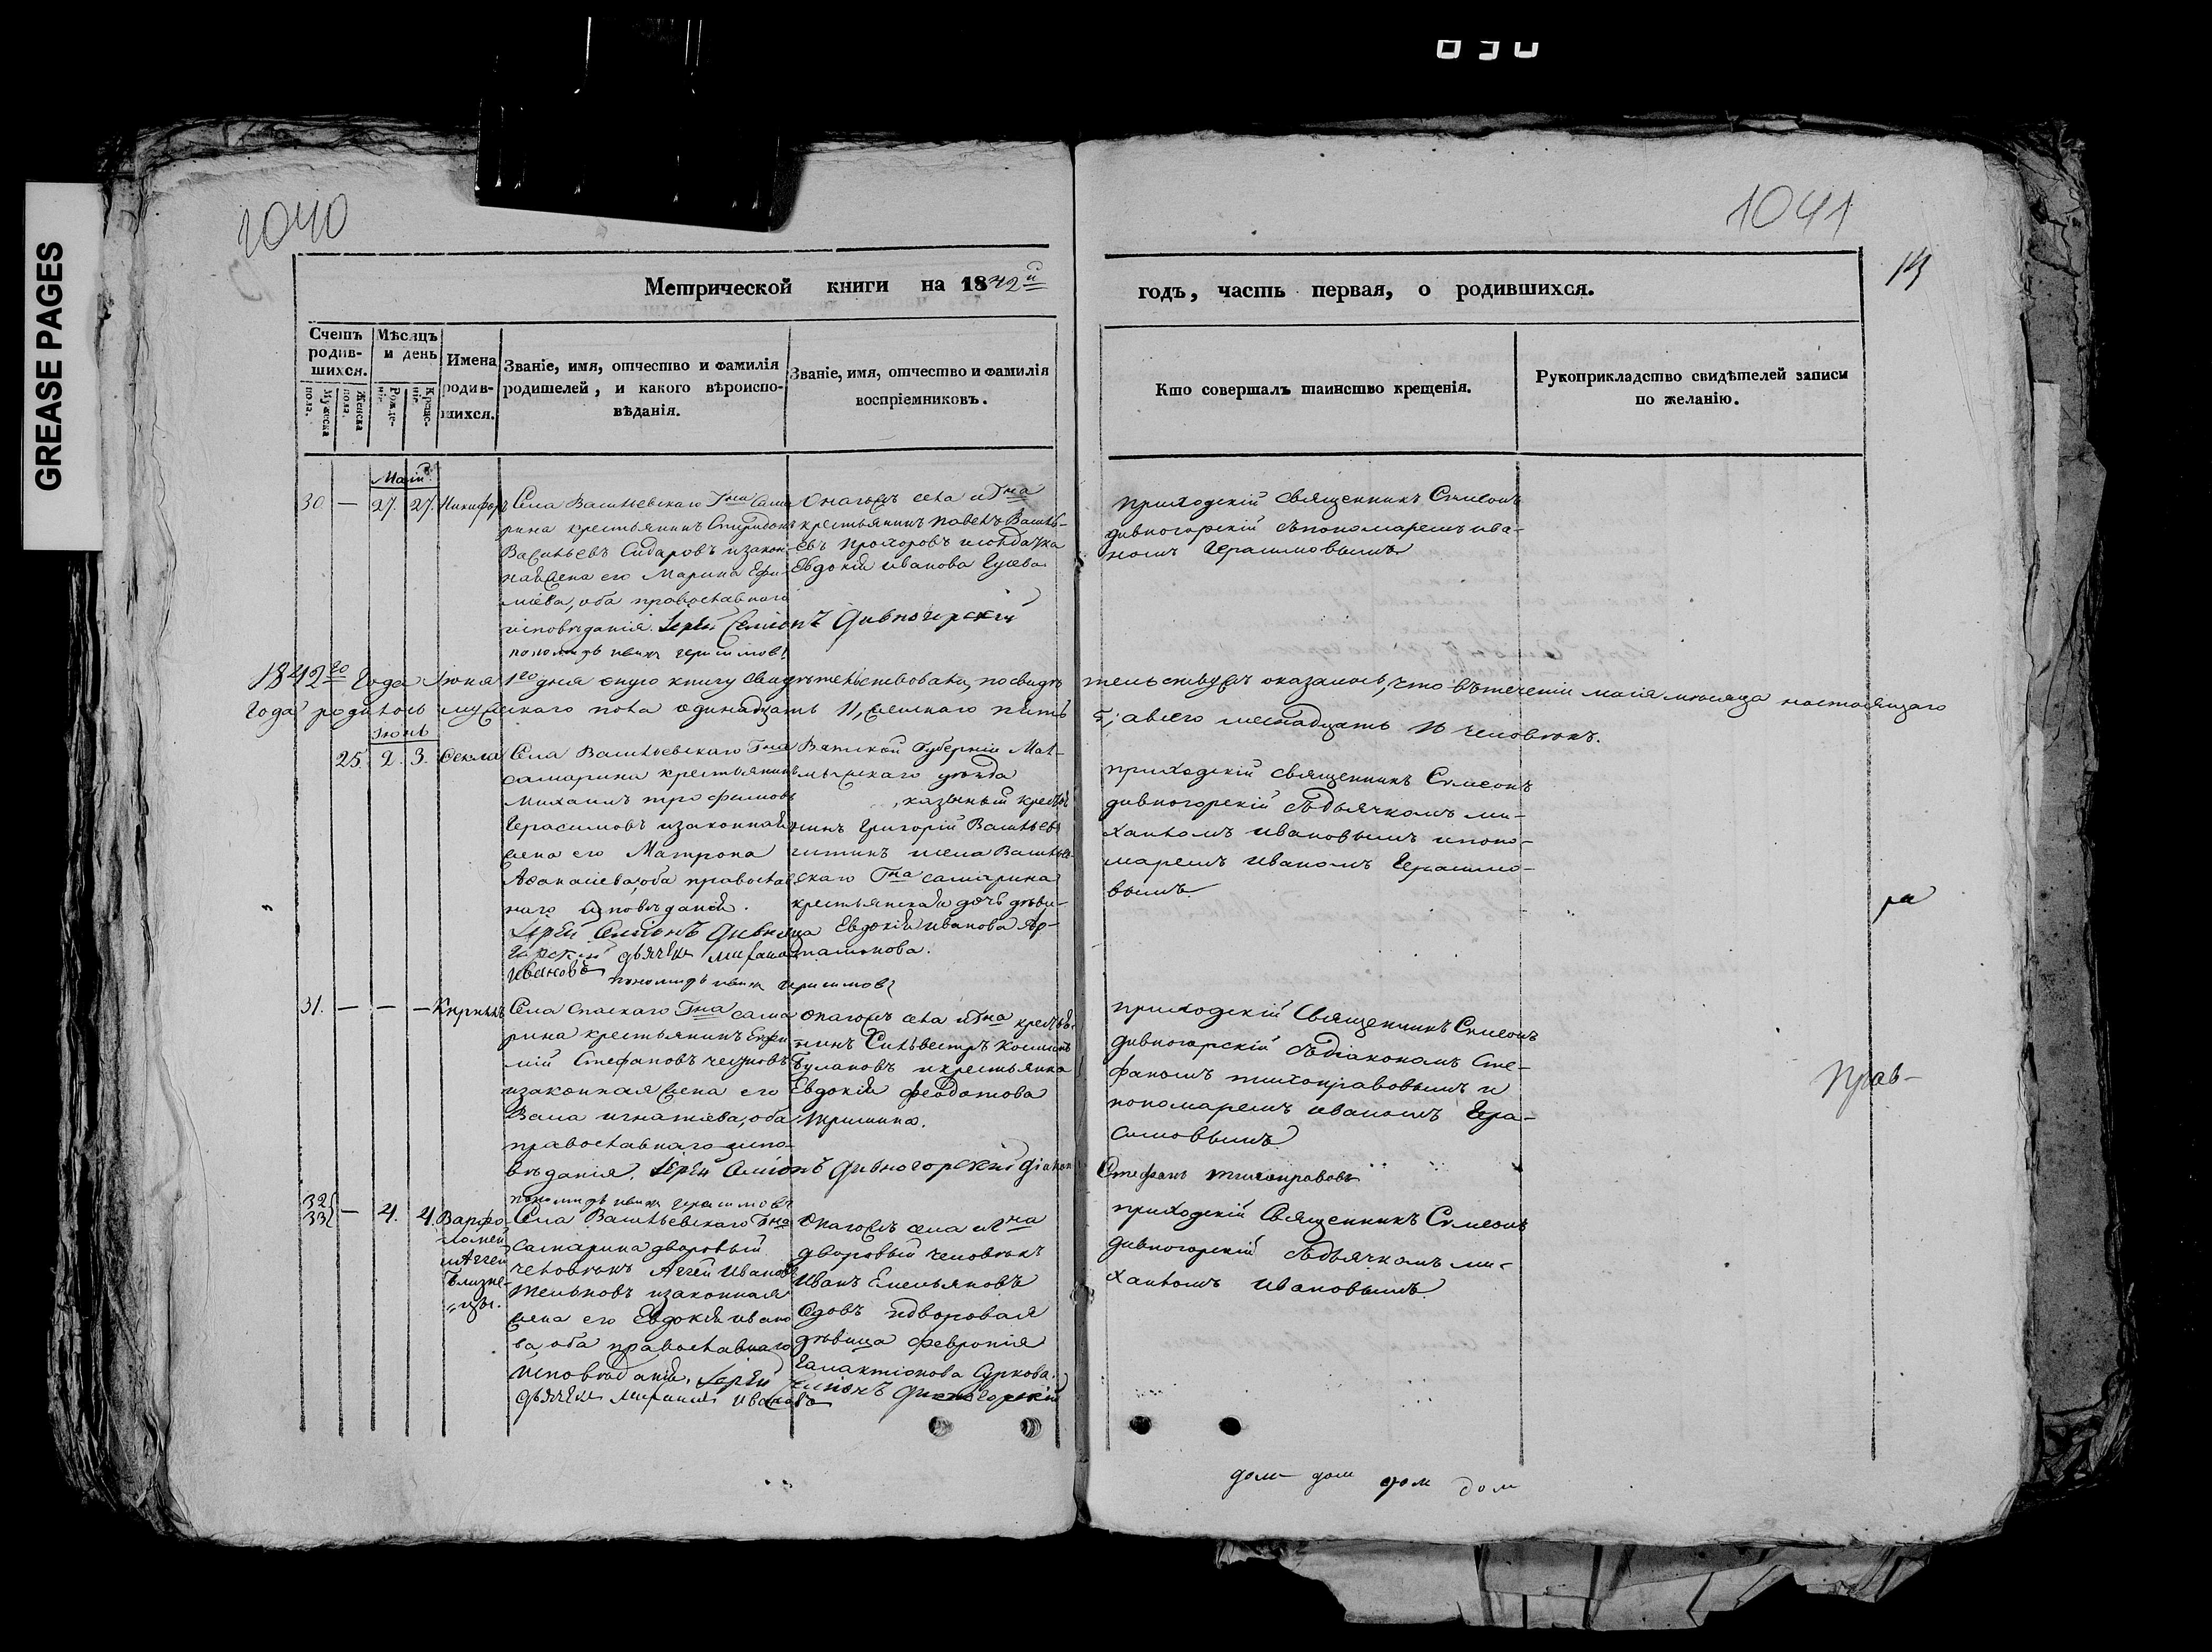 GREASE PAGES
1040
1041
Метрической книги на 1842й
годъ, часть первая, о родившихся.
Счетъ родив-шихся.
Мужеска пола.
Женска пола.
Мѣсяцъ и день
Рожде-нія.
Креще-нія.
Имена родив-шихся.
Званіе, имя, отчество и фамилія
родителей, и какого вѣроиспо-
вѣданія.
Званіе, имя, отчество и фамилія
воспріемниковъ.
Кто совершалъ таинство крещенія.
Рукоприкладство свидѣтелей записи
по желанію.
Маій
30 — 27. 27. Никифоръ
Села Васильевскаго Гна Сама
рина крестьянинъ Спиридонъ
Васильевъ Сидаровъ изакон
ная жена его Марина Ефи
мѣва, оба православнаго
исповѣданія. Іерей Симіонъ Дивногорскій
пономарь иванъ герасимовъ
Онагожъ села иГна
крестьянинъ павелъ Василь-
евъ прохоровъ исолдатка
Евдокія иванова Гусева
приходскій священникъ Симеонъ
дивногорскій съпономаремъ ива-
номъ Герасимовымъ
1842го Года Іюня 1го дня сную книгу свидѣтельствовали, посвидѣ тельствужъ оказалось, что вътеченіи маія мѣсяца настоящаго
Года родилось мужскаго пола одинадцать 11, женскаго пять 5, авсего шеснадцать 16 человѣкъ.
Іюнь
25. 2. 3. Ѳекла
Села Васильевскаго Гна
самарина крестьянинъ
Михаилъ трофимовъ
Герасимовъ изаконная
жена его Матрона
Аѳанасіева, оба православ
наго исповѣданія.
Іерей Симіонъ Дивно
горскій дьячекъ михаилъ
Ивановъ пономарь иванъ герасимовъ
Вятской Губерніи Мал-
мыжскаго уѣзда
, казенный крестья
нинъ Григорій Васильевъ
исела Василье
скаго Гна самарина
крестьянская дочь дѣви-
ца Евдокія иванова Ар-
тамонова.
приходскій священникъ Симеонъ
дивногорскій съдьячкомъ ми-
хаиломъ ивановымъ ипоно-
маремъ иваномъ Герасимо-
вымъ
ра
31. — — — Кирилъ
Села спаскаго Гна сама
рина крестьянинъ Евфи
мій Стефановъ
изаконная жена его
Васа игнатіева, оба
православнаго испо-
вѣданія. Іерей Симіонъ Дивногорскій діаконъ Стефанъ тихонравовъ
пономарь иванъ герасимовъ
Онагожъ села иГна крестья
нинъ Сильвестръ Косминъ
Булановъ икрестьянка
Евдокія феодотова
Тришина.
приходскій Священникъ Симеонъ
дивногорскій съдіакономъ Сте-
фаномъ тихонравовымъ и
пономаремъ иваномъ Гера-
симовымъ
прав-
32
33 — 4. 4. Варфо-
ломей
иАггей
близне-
цы.
Села Васильевскаго Гна
самарина дворовый
человѣкъ Аггей Ивановъ
изаконная
жена его Евдокія ивано
ва, оба православнаго
исповѣданія, Іерей Симіонъ Дивногорскій
дьячекъ михаилъ Ивановъ
Онагожъ села иГна
дворовый человѣкъ
Иванъ Емельяновъ
Сѣдовъ идворовая
дѣвица Февронія
Галактіонова Суркова.
приходскій Священникъ Симеонъ
дивногорскій съдьячкомъ ми-
хаиломъ ивановымъ
дом дом дом дом